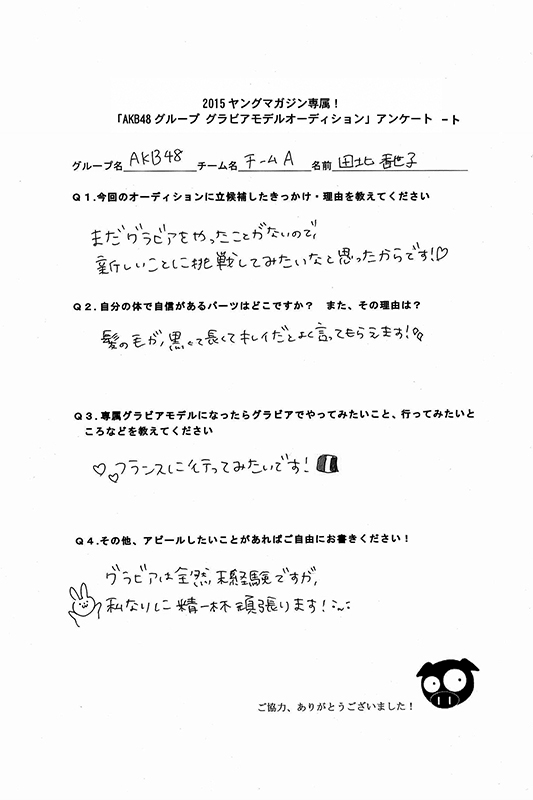 2015 ヤングマガジン専属!
「AKB48 グループ グラビアモデルオーディション」アンケート -ト
グループ名 AKB48 チーム名 チームA 名前 田北 香世子
Q1.今回のオーディションに立候補したきっかけ・理由を教えてください
まだグラビアをやったことがないので、
新しいことに挑戦してみたいなと思ったからです!♡
Q2.自分の体で自信があるパーツはどこですか? また、その理由は?
髪の毛が、黒くて長くてキレイだとよく言ってもらえます!
Q3.専属グラビアモデルになったらグラビアでやってみたいこと、行ってみたいと
ころなどを教えてください
♡♡フランスに行ってみたいです!
Q4.その他、アピールしたいことがあればご自由にお書きください!
グラビアは全然、未経験ですが、
私なりに精一杯頑張ります!
ご協力、ありがとうございました!